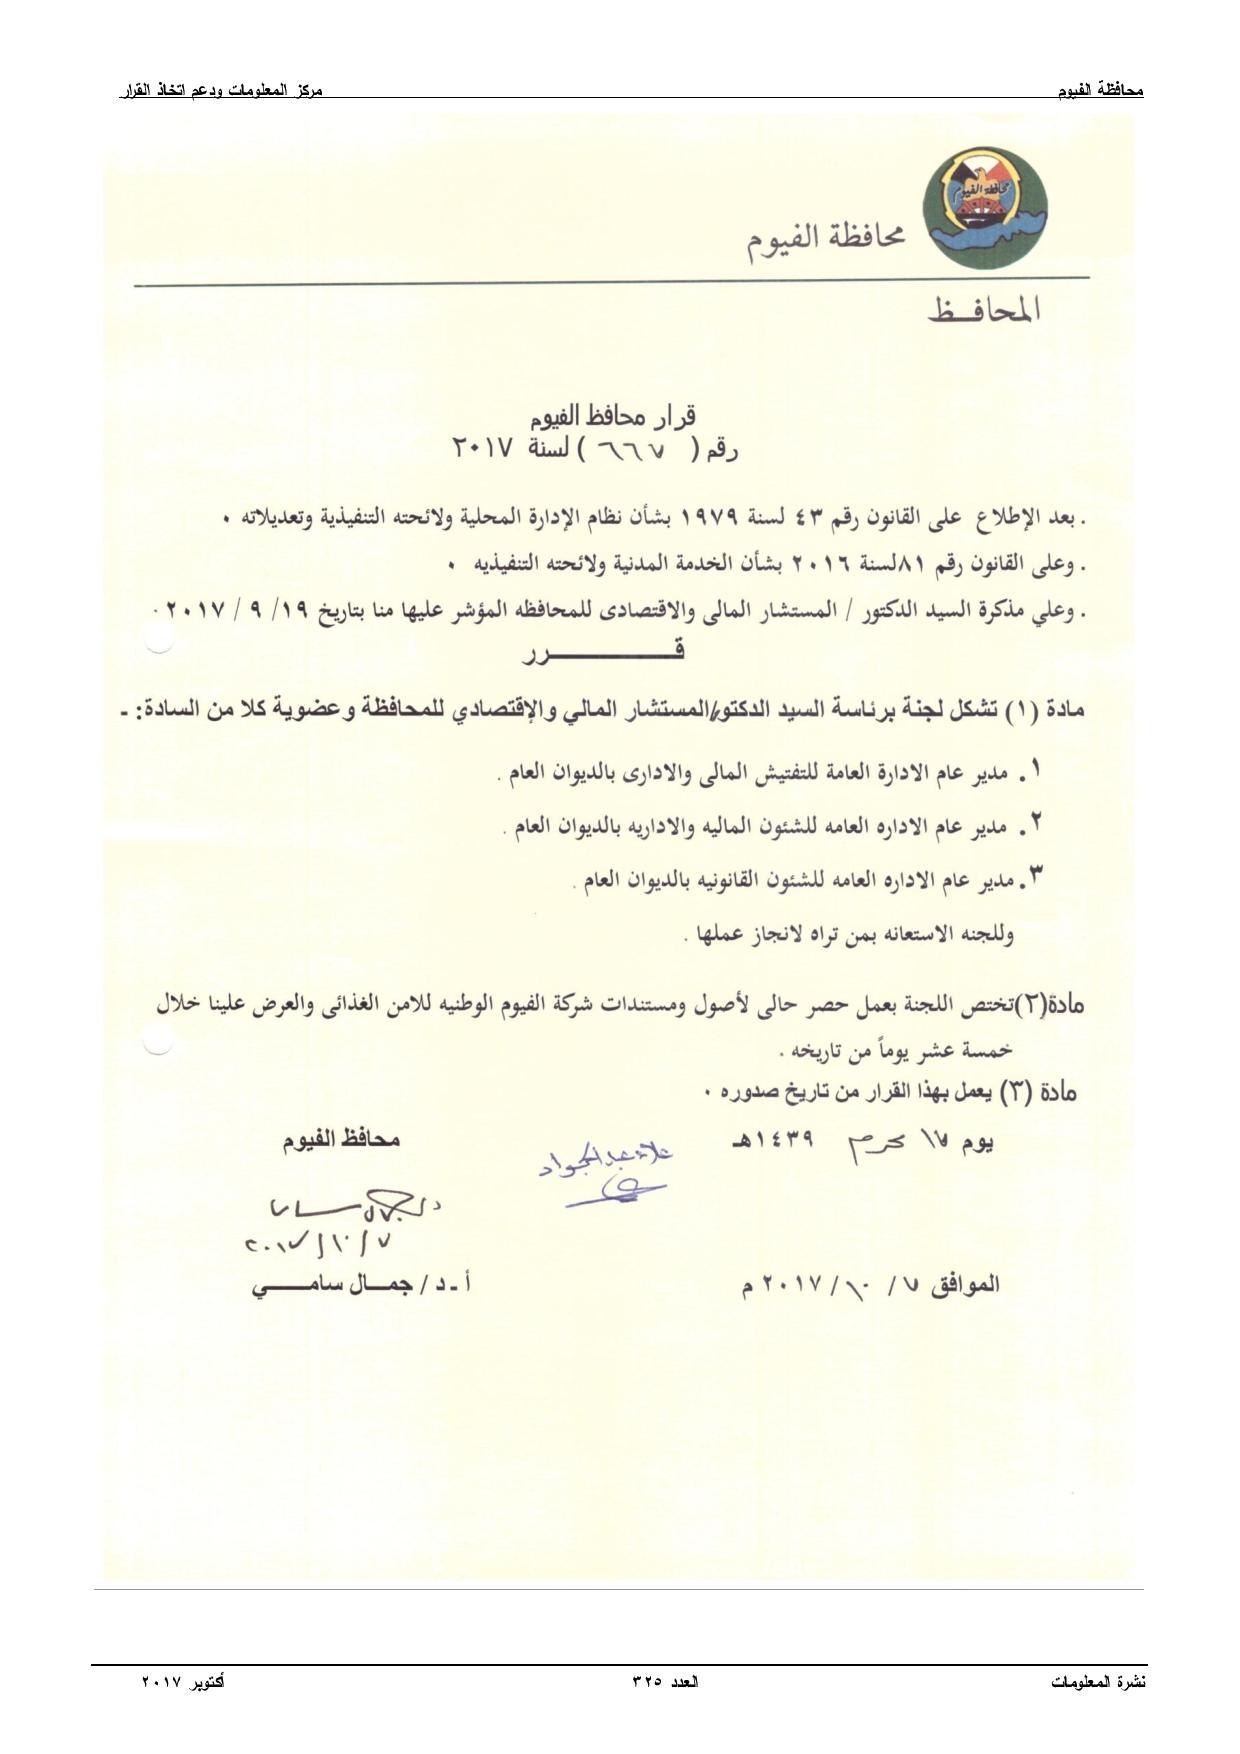 محافظة الفيوم
مركز المعلومات ودعم اتخاذ القرار
محافظة الفيوم
محافظة الفيوم
المحافــظ
قرار محافظ الفيوم
رقم ( ٦٦٧ ) لسنة ٢٠١٧
. بعد الإطلاع على القانون رقم ٤٣ لسنة ١٩٧٩ بشأن نظام الإدارة المحلية ولائحته التنفيذية وتعديلاته ٠
. وعلى القانون رقم ٨١لسنة ٢٠١٦ بشأن الخدمة المدنية ولائحته التنفيذيه ٠
. وعلي مذكرة السيد الدكتور / المستشار المالى والاقتصادى للمحافظه المؤشر عليها منا بتاريخ ١٩/ ٩ / ٢٠١٧ ٠
قـــــــــرر
مادة (١) تشكل لجنة برئاسة السيد الدكتور/المستشار المالي والإقتصادي للمحافظة وعضوية كلا من السادة: ـ
١. مدير عام الادارة العامة للتفتيش المالى والادارى بالديوان العام .
٢. مدير عام الاداره العامه للشئون الماليه والاداريه بالديوان العام .
٣. مدير عام الاداره العامه للشئون القانونيه بالديوان العام .
وللجنه الاستعانه بمن تراه لانجاز عملها .
مادة(٢)تختص اللجنة بعمل حصر حالى لأصول ومستندات شركة الفيوم الوطنيه للامن الغذائى والعرض علينا خلال
خمسة عشر يوماً من تاريخه .
مادة (٣) يعمل بهذا القرار من تاريخ صدوره ٠
يوم ١٧ محرم ١٤٣٩هـ
محافظ الفيوم
علاء عبد الجواد
٢٠١٧/١٠/٧
الموافق ٧ / ١٠ / ٢٠١٧ م
أ ـ د / جمــال سامــــي
نشرة المعلومات
العدد ٣٢٥
أكتوبر ٢٠١٧